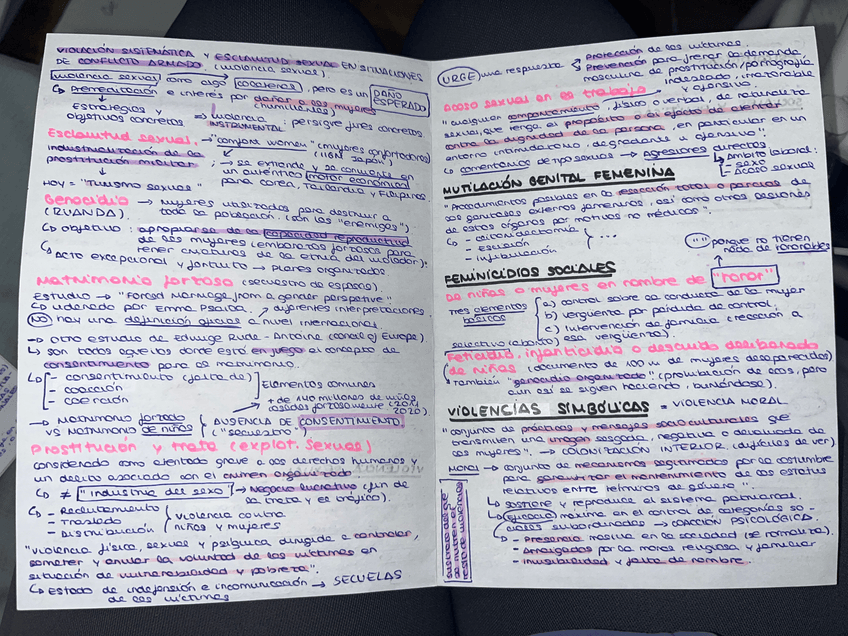 VIOLACIÓN SISTEMÁTICA y ESCLAVITUD SEXUAL EN SITUACIONES
DE CONFLICTO ARMADO. (violencia sexual)
violencia sexual como algo cotidiano, pero es un DAÑO
ESPERADO
↳ Premeditación e interés por dañar a las mujeres
(humillarlas)
Estrategias y
objetivos concretos → violencia
INSTRUMENTAL: persigue fines concretos.
Esclavitud sexual. → "comfort women" (mujeres confortadoras)
(IIGM Japón)
industrialización de la
prostitución militar ; → se extiende y se convierte en
un auténtico motor económico
para Corea, Tailandia y Filipinas.
HOY = "Turismo sexual"
Genocidio → mujeres utilizadas para destruir a
toda la población. (son las "enemigas")
(RUANDA).
↳ objetivo: apropiarse de la capacidad reproductiva
de las mujeres (embarazos forzosos para
tener criaturas de la etnia del violador).
↳ ACTO excepcional y fortuito → planes organizados.
Matrimonio forzoso (secuestro de esposas)
Estudio → "Forced Marriage from a gender perspective".
↳ liderado por Emma Psaila. → diferentes interpretaciones.
NO hay una definición oficial a nivel internacional.
→ otro estudio de Edwige Rude-Antoine (Consell of Europe)
↳ son todos aquellos donde está en juego el concepto de
consentimiento para el matrimonio.
↳ - consentimiento (falta de)
- coacción
- coerción
Elementos comunes
+ de 140 millones de niñas
casadas forzosamente (2011
2020).
→ MATRIMONIO forzado
VS MATRIMONIO de niñas (AUSENCIA DE CONSENTIMIENTO,
("secuestro").
Prostitución y trata (explot. sexual)
considerado como atentado grave a los derechos humanos y
un delito asociado con el crimen organizado
↳ ≠ "industria del sexo" → Negocio lucrativo (fin de
la trata y el tráfico).
↳ - Reclutamiento
- Traslado
- Distribución
violencia contra
niñas y mujeres
"violencia física, sexual y psíquica dirigida a controlar,
someter y anular la voluntad de las víctimas en
situación de vulnerabilidad y pobreza".
↳ Estado de indefensión e incomunicación → SECUELAS
de las víctimas
URGE/una respuesta
Protección de las víctimas.
Prevención para frenar la demanda
masculina de prostitución/pornografía
Acoso sexual en el trabajo → indeseado, irrazonable
y ofensivo.
"cualquier comportamiento, físico o verbal, de naturaleza
sexual, que tenga el propósito o el efecto de atentar
contra la dignidad de la persona, en particular en un
entorno intimidatorio, degradante u ofensivo".
↳ comentarios de tipo sexual → agresiones directas
↳ Ámbito laboral:
- sexo
- Acoso sexual
MUTILACIÓN GENITAL FEMENINA
"Procedimientos basados en la resección total o parcial de
los genitales externos femeninos, así como otras lesiones
de estos órganos por motivos no médicos".
↳ - clitoridectomía
- escisión
- infibulación
...
("") porque no tienen
nada de honorables
FEMINICIDIOS SOCIALES
De niñas o mujeres en nombre de "honor"
Tres elementos
básicos
a) control sobre la conducta de la mujer
b) vergüenza por pérdida de control.
c) Intervención de familia (reacción a
esa vergüenza).
selectivo (aborto)
Feticidio, infanticidio o descuido deliberado
de niñas (documento de 100 M de mujeres desaparecidas)
↳ También "genocidio organizado" (prohibición de ecos, pero
aun así se siguen haciendo, burlándose).
VIOLENCIAS SIMBÓLICAS = VIOLENCIA MORAL
"conjunto de prácticas y mensajes socioculturales que
transmiten una imagen sesgada, negativa o devaluada de
las mujeres". → COLONIZACIÓN INTERIOR (difíciles de ver)
MORAL → conjunto de mecanismos legitimados por la costumbre
para garantizar el mantenimiento de los estatus
relativos entre términos de género".
↳ SOSTIENE y reproduce al sistema patriarcal.
↳ Eficacia máxima en el control de categorías so-
ciales subordinadas → COACCIÓN PSICOLÓGICA.
- Presencia masiva en la sociedad (se normaliza).
- Arraigadas por la moral religiosa y familiar
- Invisibilidad y falta de nombre.